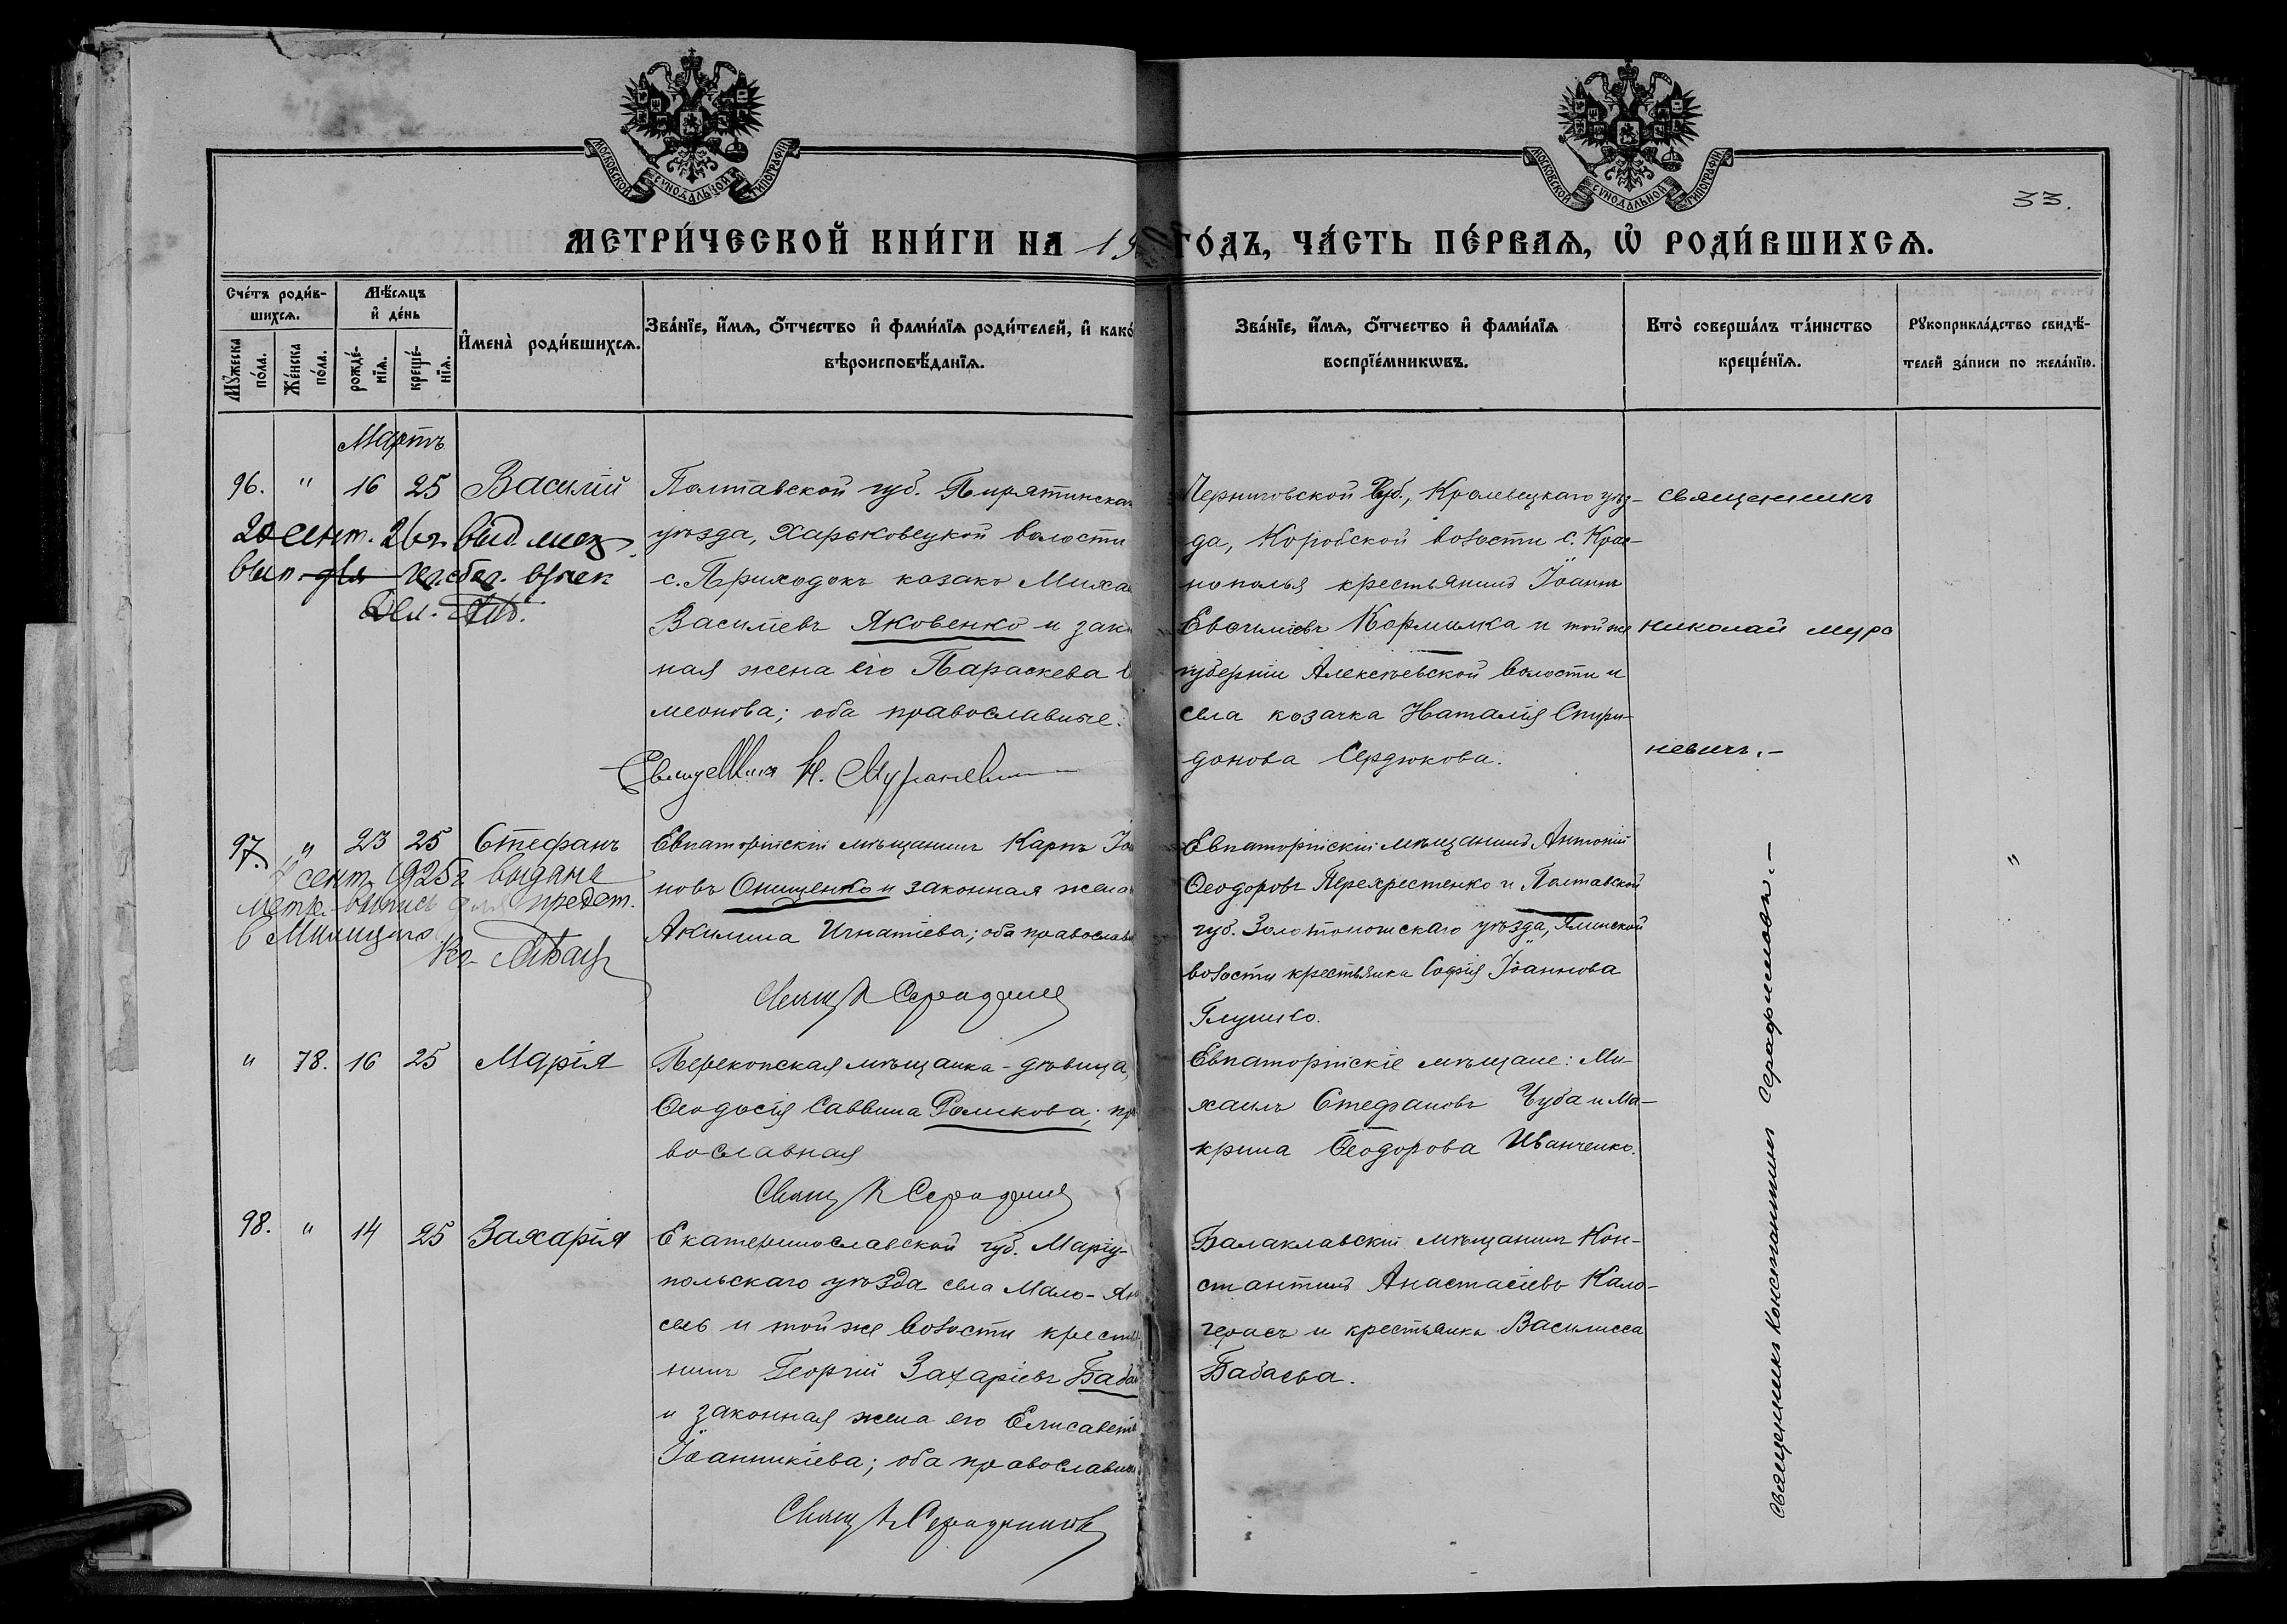 МОСКОВСКОЙ СѴНОДАЛЬНОЙ ТИПОГРАФІИ
МОСКОВСКОЙ СѴНОДАЛЬНОЙ ТИПОГРАФІИ
33.
МЕТРИ́ЧЕСКОЙ КНИ́ГИ НА 19
ГО́ДЪ, ЧА́СТЬ ПЕ́РВАѦ, Ѡ РОДИ́ВШИХСѦ.
Сче́тъ роди́в-
шихсѧ.
Мꙋ́жеска по́ла.
Же́нска по́ла.
Мѣ́сѧцъ
и де́нь
рожде́-нїѧ.
креще́-нїѧ.
Имена̀ роди́вшихсѧ.
Зва́нїе, и́мѧ, о́тчество и фами́лїѧ роди́телей, и како́
вѣроисповѣ́данїѧ.
Зва́нїе, и́мѧ, о́тчество и фами́лїѧ
воспрїе́мникѡвъ.
Кто̀ соверша́лъ та́инство
креще́нїѧ.
Рꙋкоприкла́дство свидѣ́-
телей за́писи по жела́нїю.
Мартъ
96. " 16 25 Василій
20 сент. 26 г. выд. метр.
вып.
Полтавской губ. Пирятинска
уѣзда, Харьковецкой волости
с. Приходокъ козакъ Миха
Василіевъ Яковенко и зако
ная жена его Параскева
меонова; оба православные.
Священникъ Н. Мураневич
Черниговской Губ., Кролевецкаго уѣз-
да, Коробской волости с. Крас-
нополья крестьянинъ Іоаннъ
Евфиміевъ Кормилка и той же
губерніи Алексѣевской волости и
села козачка Наталія Спири-
донова Сердюкова.
священникъ
николай мура
невичъ.–
97. " 23 25 Стефанъ
сент. 1925 г. выдана
метр. выпись для предст.
в Милицию
Евпаторійскій мѣщанинъ Карпъ Іоа
новъ Онищенко и законная жена
Акилина Игнатіева; оба православ
Свящ. К Серафимов
Евпаторійскій мѣщанинъ Антоній
Ѳеодоровъ Перехрестенко и Полтавской
губ. Золотоношскаго уѣзда,
волости крестьянка Софія Іоаннова
Глушко.
" 78. 16 25 Марія
Перекопская мѣщанка-дѣвица,
Ѳеодосія Саввина Роликова; пра
вославная
Свящ. К Серафимов
Евпаторійскіе мѣщане: Ми-
хаилъ Стефановъ Чуба и Ма-
крина Ѳеодорова Иванченко.
98. " 14 25 Захарія
Екатеринославской губ. Маріу-
польскаго уѣзда села Мало-Яни
соль и той же волости крестья
нинъ Георгій Захаріевъ Баба
и законная жена его Елисавета
Іоанникіева; оба православны
Свящ. К Серафимовъ
Балаклавскій мѣщанинъ Кон-
стантинъ Анастасіевъ Кало-
герасъ и крестьянка Василисса
Бабаева.
священникъ Константинъ Серафимовъ.–
"